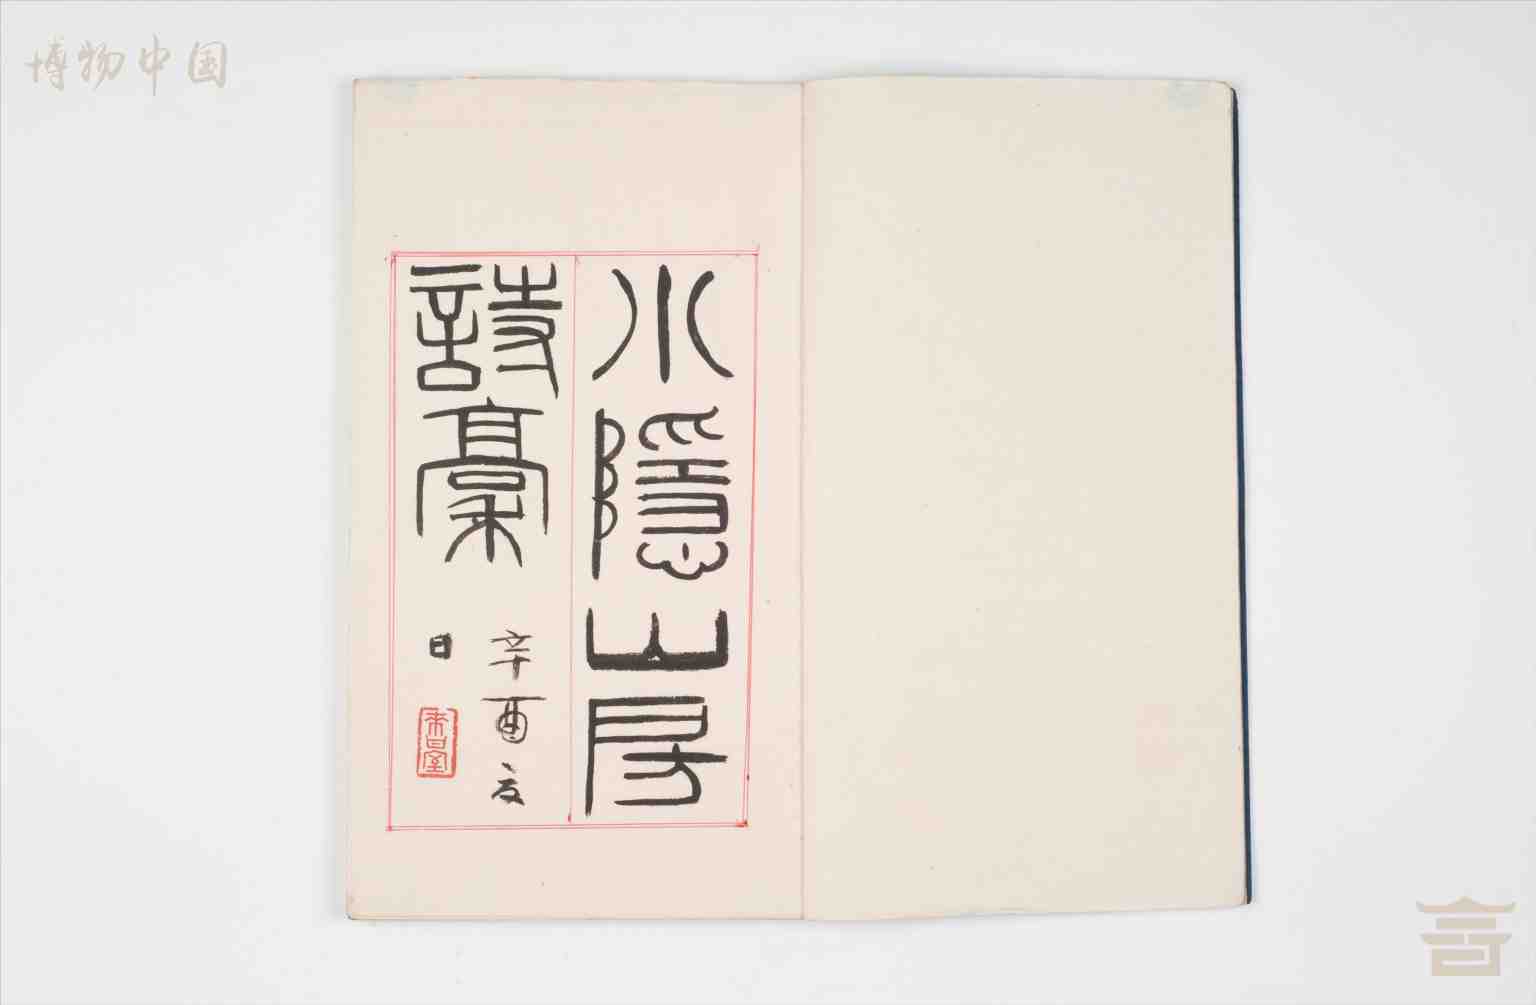 博物中国
小隱山房
詩稾
辛酉夏
日